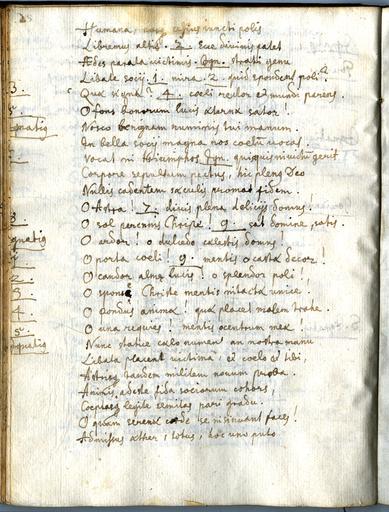 25
Humana, cuncti polis
Libremus altis. 2. Ecce divinis patet
Ædes parata victimis. Ign. strati genu
Libate socij. 1. mira. 2. quid spondens poli?
3. Quæ signa? 4. cœli rector et mundi parens.
5. O fons bonorum lucis æternæ sator!
Ignatig Nosco benignam numinis tui manum.
1. In bella socys magna nos coetu vocas.
2. Vocat ni triumphos Ign. quisquis gerit
Corpore sepultum pectus, hic pleng Deo
Nulles cadentem sæculis promat fidem.
O Astra. 7. divis plena delicijs domus.
8. O sol perennis Christe! 9. sat domine, satis.
Ignatig O ardor! o dulcedo cælestis domus!
1. O porta cœli! 9. mentis o casta decor!
2. O candor almæ lucis! o splendor poli!
3. O sponse Christe mentis intactæ unice!
4. O pondus animæ! quà placet molem trahe.
5. O una requies! mentis o centrum meæ!
Ignatig Nunc statice cælo numen an nostra manu
Libata placeat victima: et coelo et tibi,
Astrisq tandem militem novum proba.
Animis adeste fida sociorum cohors,
Coeptasq legite semitas pari gradu.
O quam serenæ corde se insinuant faces!
Admissus æther, totus, hoc uno puto